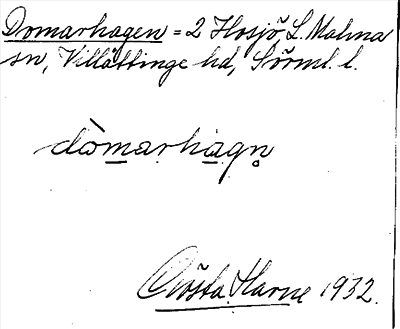 Domarhagen = 2 Hosjö, L. Malma
sn, Villåttinge hd, Sörml. l.
dòmarhagn̥
Gösta Harne 1932.